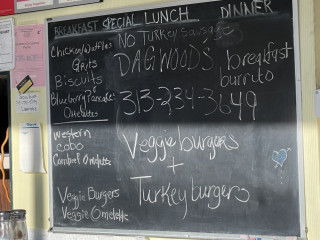 BREAKFAST SPECIAL LUNCH DINNER
NO Turkey Sausage
Chicken/Waffles
Grits
Biscuits
Blueberry Pancakes
Omelettes
Western
Cobo
Combreef Omelettes
Veggie Burgers
Veggie Omelette
DAGWOODS
breakfast
burrito
313-234-3649
Veggie burgers
+
Turkey burgers